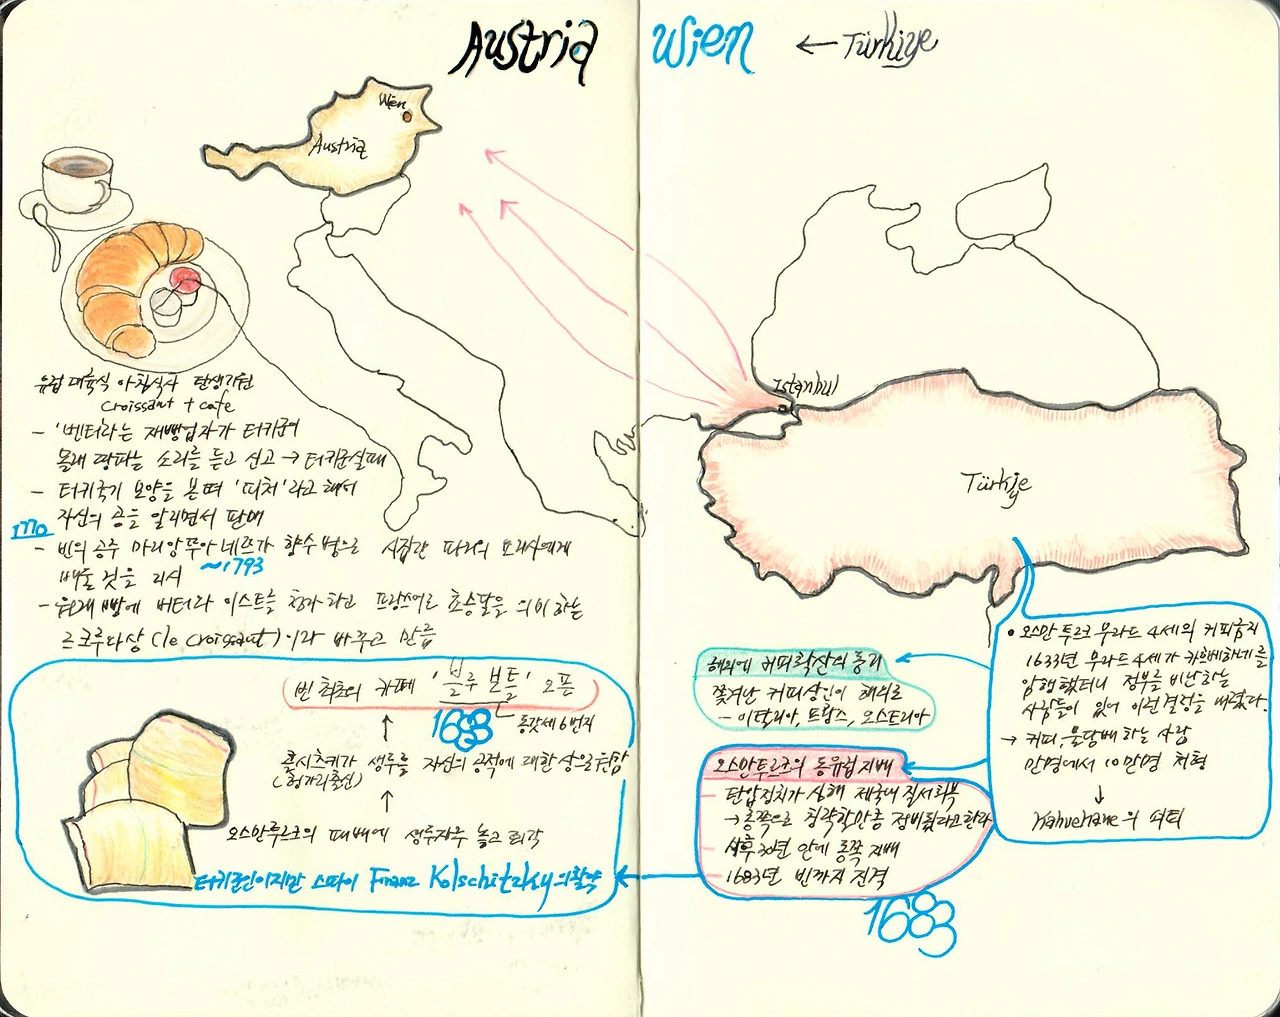 Austria Wien ← Türkiye
Wien
Austria
Istanbul
Türkiye
유럽 대륙식 아침식사 탄생기원
Croissant + cafe
- '벤더라는 제빵업자가 터키군이
몰래 땅파는 소리를 듣고 신고 → 터키군실패
- 터키국기 모양을 본떠 '피처'라고 해서
자신의 공을 알리면서 판매
1770
- 빈의 공주 마리앙뚜아네뜨가 향수병으로 시집간 파리의 요리사에게
~1793
배울 것을 지시
- 원래 빵에 버터와 이스트를 첨가하고 프랑스어로 초승달을 의미하는
르크루아상 (le croissant)이라 바꾸고 만듬
빈 최초의 카페 '블루 보틀' 오픈
1683
돔갓세 6번지
↑
콜시츠키가 생두를 자신의 공적에 대한 상으로
(헝가리출신)
↑
오스만투르크의 패배에 생두자루 놓고 퇴각
터키군인이지만 스파이 Franz Kolschitzky의 활약
해외에 커피확산의 동기
쫓겨난 커피상인이 해외로
- 이탈리아, 프랑스, 오스트리아
오스만투르크의 동유럽 지배
- 탄압정치가 심해 제국내 질서회복
→ 동쪽으로 침략할만큼 정비됐다고한다
- 사후 30년 안에 동쪽 지배
- 1683년 빈까지 진격
1683
• 오스만 투르크 무라드 4세의 커피금지
1633년 무라드 4세가 카흐베하네를
암행했더니 정부를 비난하는
사람들이 있어 이런 결정을 내렸다.
→ 커피, 물담배 하는 사람
만명에서 10만명 처형
↓
Kahvehane의